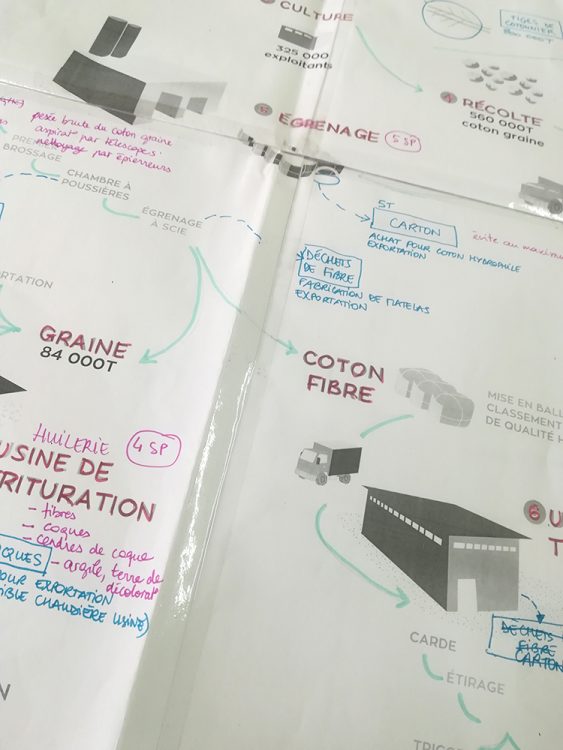 CULTURE
325 000
exploitants
TIGES DE
COTONNIER
4 RÉCOLTE
560 000T
coton graine
5 ÉGRENAGE
5 SP
pesée brute du coton graine
aspirat° par télescopes
nettoyage par épierreurs
BROSSAGE
CHAMBRE À
POUSSIÈRES
ÉGRENAGE
À SCIE
ST
CARTON
ACHAT POUR COTON HYDROPHILE
EXPORTATION
évite au maximum
DÉCHETS
DE FIBRE
FABRICATION DE MATELAS
EXPORTATION
GRAINE
84 000T
COTON
FIBRE
MISE EN BALL
CLASSEMENT
DE QUALITÉ H
HUILERIE
4 SP
USINE DE
TRITURATION
- fibres
- coques
- cendres de coque
- argile, terre de
décolorat°
OQUES
POUR EXPORTATION
IBLE CHAUDIÈRE USINE)
6 U
T
DÉCHETS
FIBRE
CARTON
CARDE
ÉTIRAGE